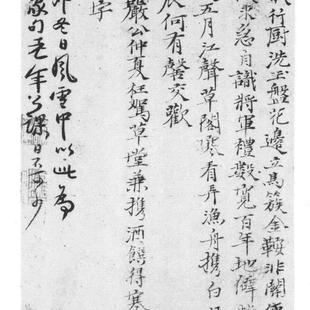 行廚洗玉盤花邊立馬簇金鞍非關使
求急自識將軍禮數寬百年地僻
五月江聲草閣寒看弄漁舟携白日
何有罄交歡
嚴公仲夏枉駕草堂兼携酒饌得寒
字
冬日風雪中以此為
課日不可少